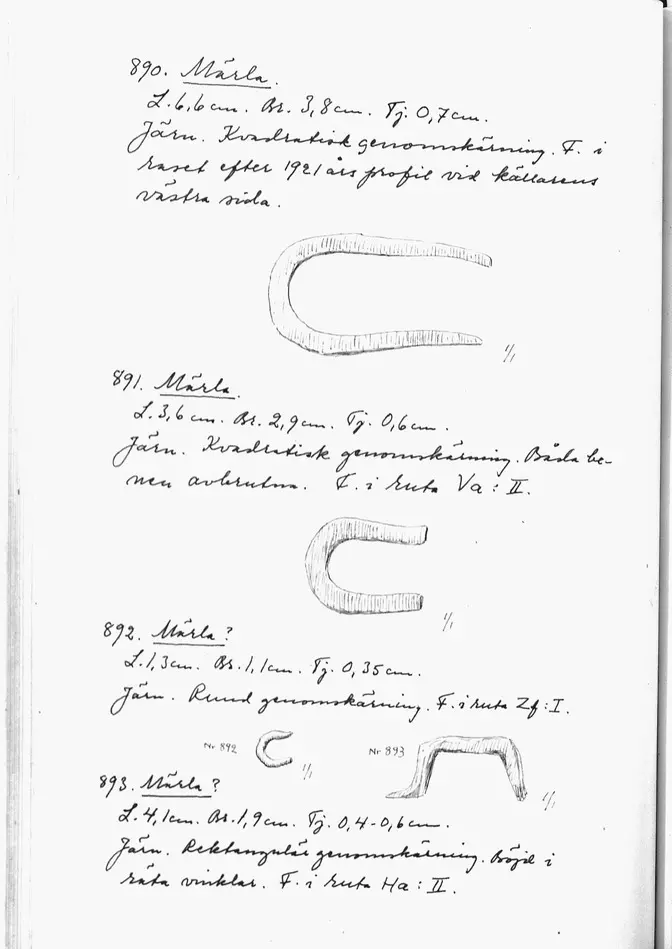 890. Märla.
L. 6,6 cm. Br. 3,8 cm. Tj. 0,7 cm.
Järn. Kvadratisk genomskärning. F. i
raset efter 1921 års profil vid källarens
västra sida.
1/1
891. Märla.
L. 3,6 cm. Br. 2,9 cm. Tj. 0,6 cm.
Järn. Kvadratisk genomskärning. Båda be-
nen avbrutna. F. i ruta Va : II.
1/1
892. Märla?
L. 1,3 cm. Br. 1,1 cm. Tj. 0,35 cm.
Järn. Rund genomskärning. F. i ruta Zf : I.
Nr 892 1/1 Nr 893 1/1
893. Märla?
L. 4,1 cm. Br. 1,9 cm. Tj. 0,4-0,6 cm.
Järn. Rektangulär genomskärning. Böjd i
räta vinklar. F. i ruta Ha : II.